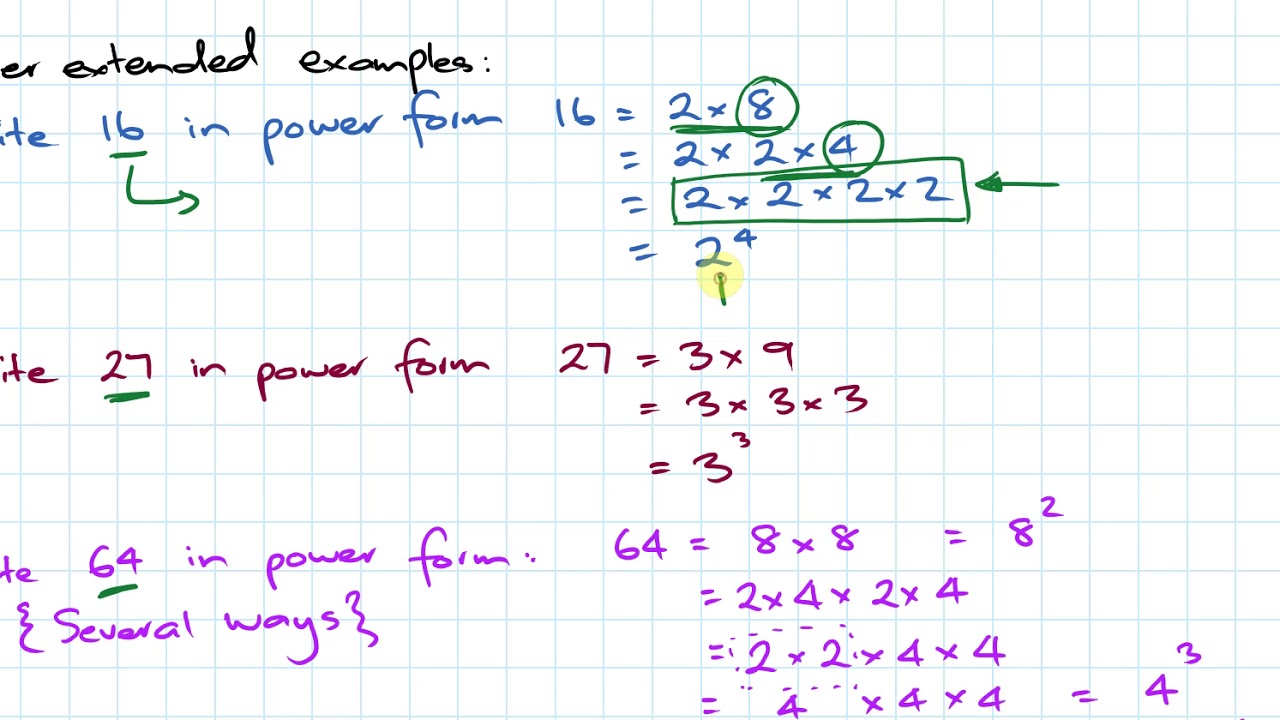 er extended examples:
ite 16 in power form 16 = 2 × 8
= 2 × 2 × 4
= 2 × 2 × 2 × 2
= 2⁴
ite 27 in power form 27 = 3 × 9
= 3 × 3 × 3
= 3³
te 64 in power form: 64 = 8 × 8 = 8²
= 2 × 4 × 2 × 4
{Several ways}
= 2 × 2 × 4 × 4
= 4 × 4 × 4 = 4³